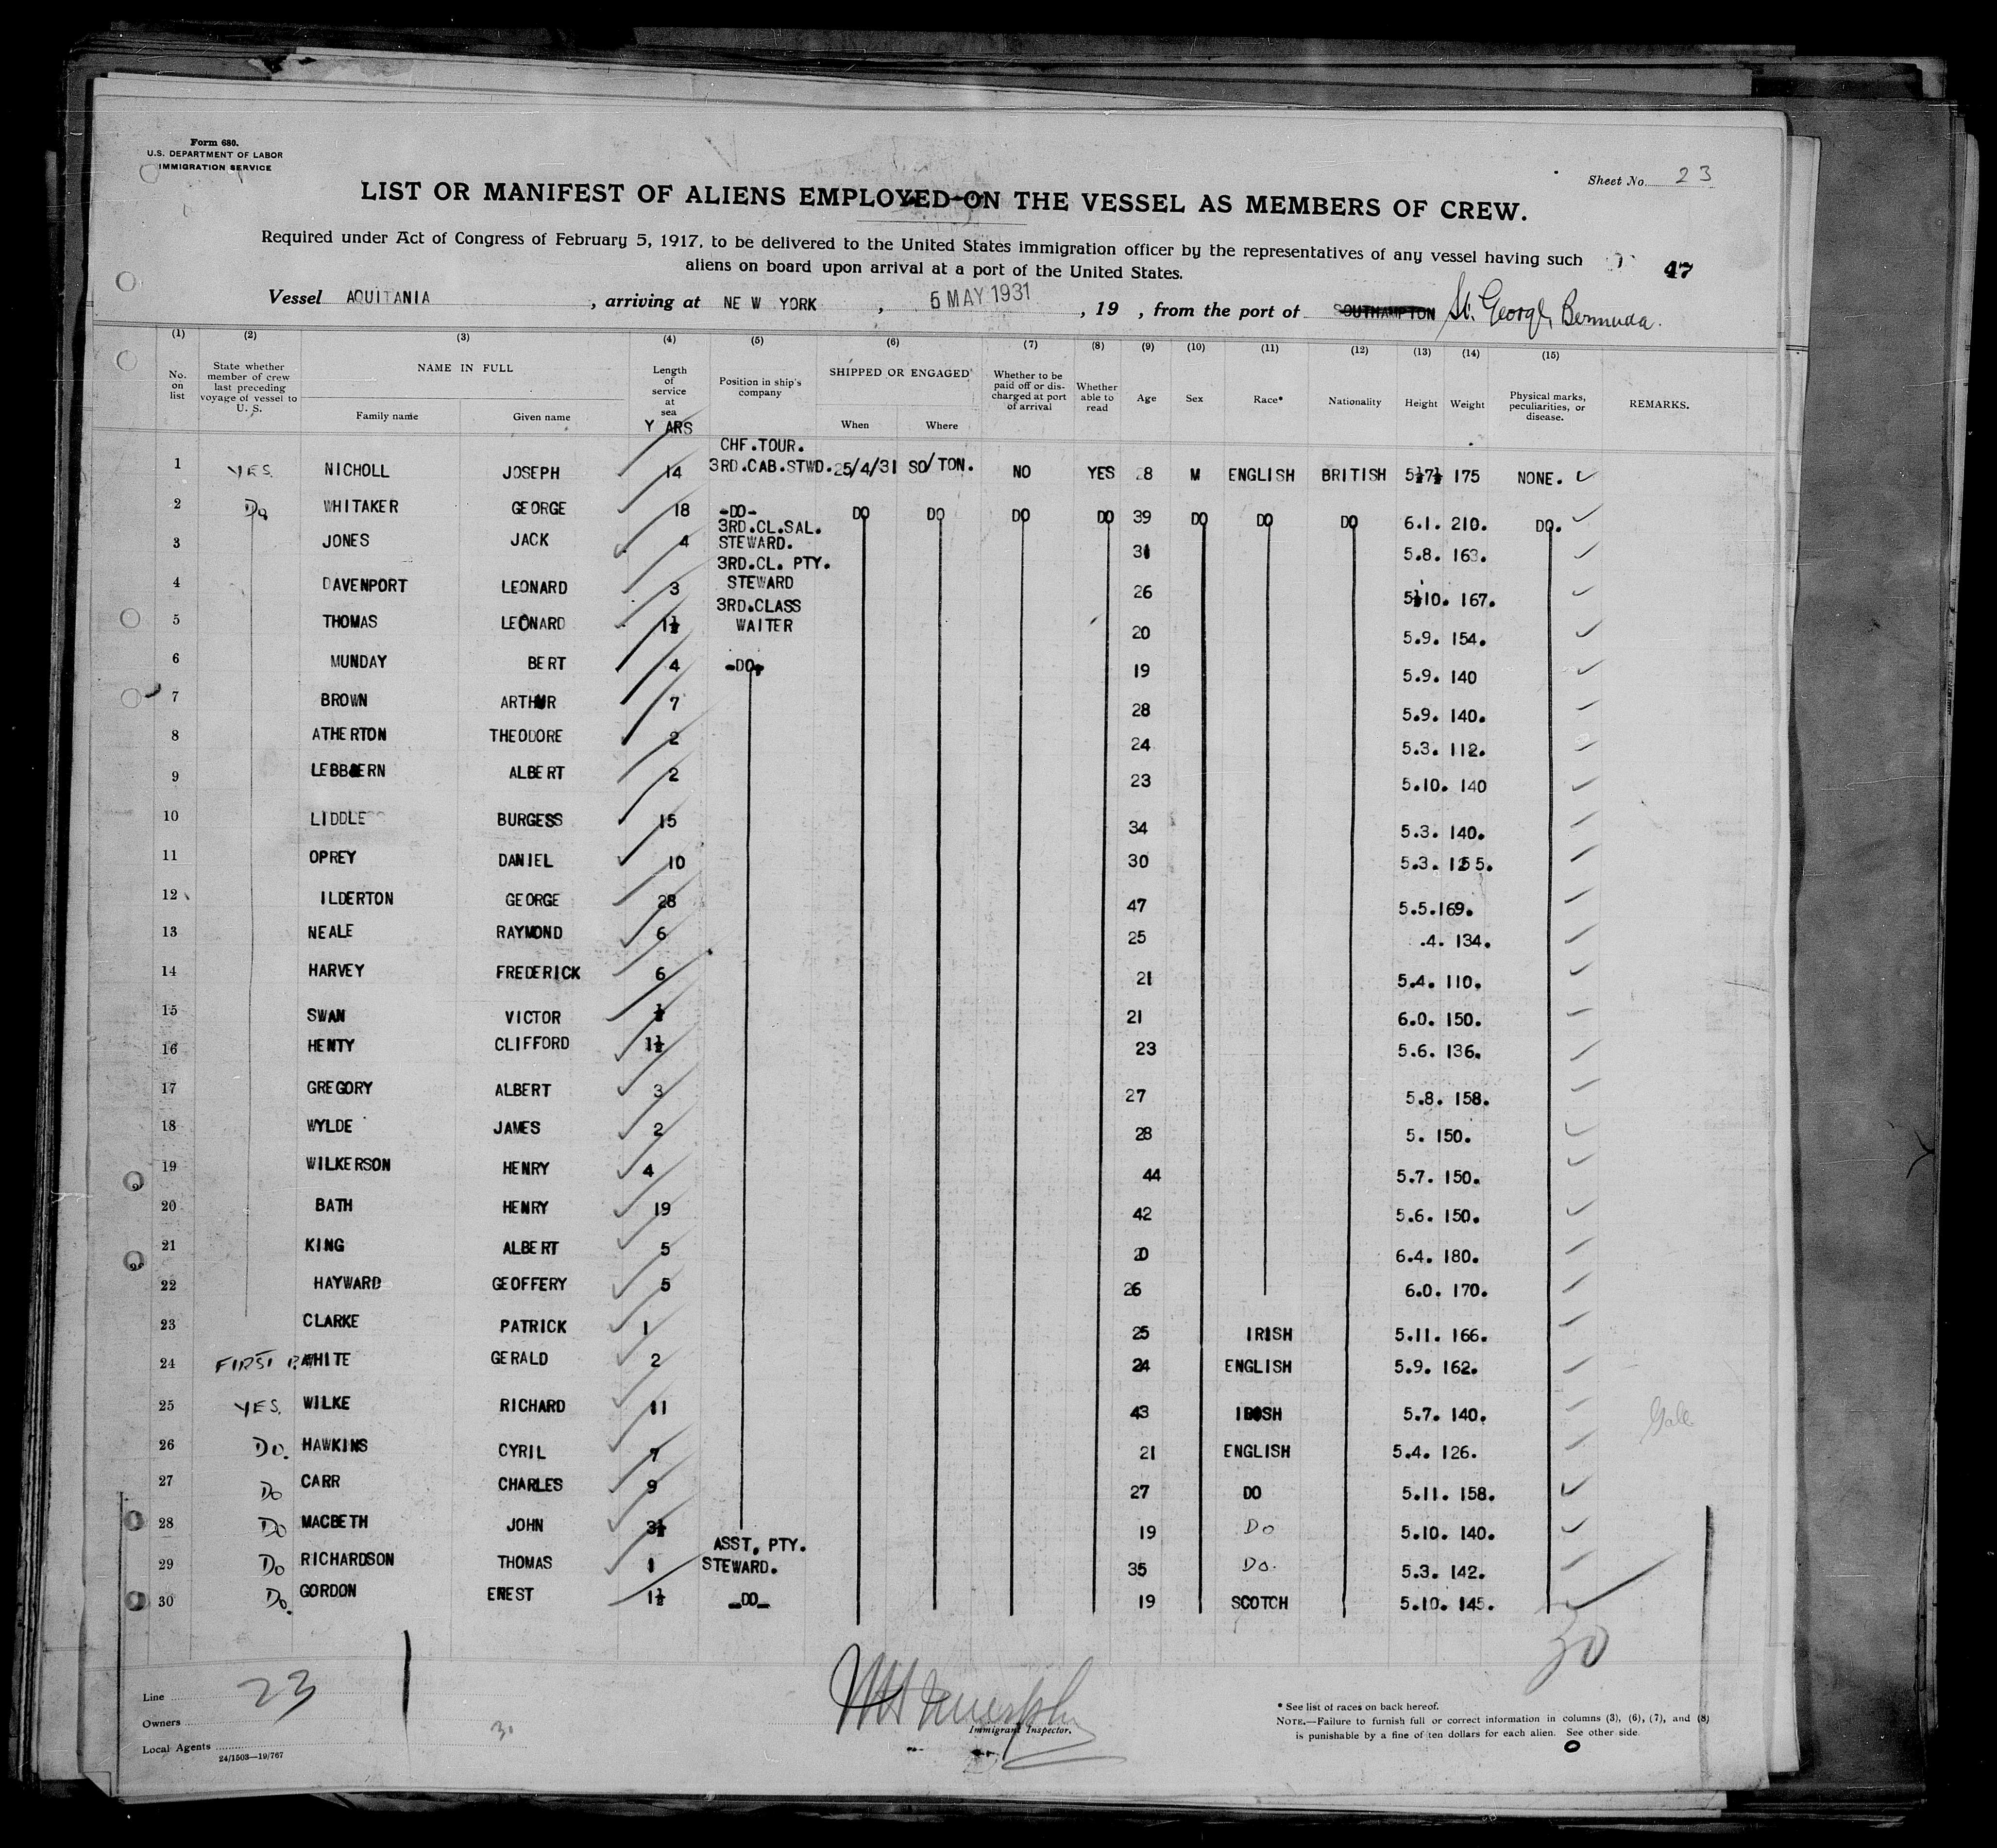 Form 680.
U.S. DEPARTMENT OF LABOR
IMMIGRATION SERVICE
Sheet No. 23
LIST OR MANIFEST OF ALIENS EMPLOYED ON THE VESSEL AS MEMBERS OF CREW.
Required under Act of Congress of February 5, 1917, to be delivered to the United States immigration officer by the representatives of any vessel having such
aliens on board upon arrival at a port of the United States.
47
Vessel AQUITANIA, arriving at NEW YORK, 5 MAY 1931, 19 , from the port of SOUTHAMPTON St. George, Bermuda.
(1) (2) (3) (4) (5) (6) (7) (8) (9) (10) (11) (12) (13) (14) (15)
No. on list
State whether member of crew last preceding voyage of vessel to U. S.
NAME IN FULL
Family name Given name
Length of service at sea
Y ARS
Position in ship's company
SHIPPED OR ENGAGED
When Where
Whether to be paid off or discharged at port of arrival
Whether able to read
Age Sex Race* Nationality Height Weight
Physical marks, peculiarities, or disease.
REMARKS.
CHF.TOUR.
1 YES. NICHOLL JOSEPH 14 3RD.CAB.STWD. 25/4/31 SO/TON. NO YES 28 M ENGLISH BRITISH 5½7½ 175 NONE.
2 Do WHITAKER GEORGE 18 -DO- DO DO DO DO 39 DO DO DO 6.1. 210. DO.
3RD.CL.SAL.
3 JONES JACK 4 STEWARD. 31 5.8. 163.
3RD.CL. PTY.
4 DAVENPORT LEONARD 3 STEWARD 26 5½10. 167.
3RD.CLASS
5 THOMAS LEONARD 1½ WAITER 20 5.9. 154.
6 MUNDAY BERT 4 -DO- 19 5.9. 140
7 BROWN ARTHUR 7 28 5.9. 140.
8 ATHERTON THEODORE 2 24 5.3. 112.
9 ALBERT 2 23 5.10. 140
10 LIDDLE BURGESS 15 34 5.3. 140.
11 OPREY DANIEL 10 30 5.3. 155.
12 ILDERTON GEORGE 28 47 5.5.169.
13 NEALE RAYMOND 6 25 .4. 134.
14 HARVEY FREDERICK 6 21 5.4. 110.
15 SWAN VICTOR ½ 21 6.0. 150.
16 HENTY CLIFFORD 1½ 23 5.6. 136.
17 GREGORY ALBERT 3 27 5.8. 158.
18 WYLDE JAMES 2 28 5. 150.
19 WILKERSON HENRY 4 44 5.7. 150.
20 BATH HENRY 19 42 5.6. 150.
21 KING ALBERT 5 20 6.4. 180.
22 HAYWARD GEOFFERY 5 26 6.0. 170.
23 CLARKE PATRICK 1 25 IRISH 5.11. 166.
24 FIRST WHITE GERALD 2 24 ENGLISH 5.9. 162.
25 YES. WILKE RICHARD 11 43 IRISH 5.7. 140.
26 Do. HAWKINS CYRIL 7 21 ENGLISH 5.4. 126.
27 Do CARR CHARLES 9 27 DO 5.11. 158.
28 Do MACBETH JOHN 3½ 19 Do 5.10. 140.
ASST. PTY.
29 Do RICHARDSON THOMAS 1 STEWARD. 35 Do. 5.3. 142.
30 Do. GORDON ENEST 1½ -DO- 19 SCOTCH 5.10. 145.
30
Line
23
Owners
30
Local Agents
24/1503—19/767
Immigrant Inspector.
* See list of races on back hereof.
NOTE.—Failure to furnish full or correct information in columns (3), (6), (7), and (8)
is punishable by a fine of ten dollars for each alien. See other side.